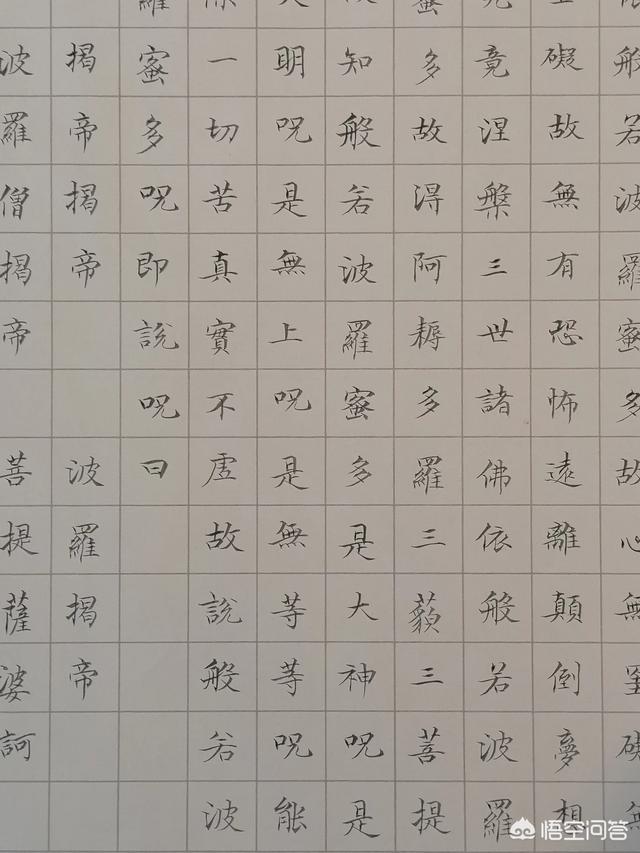 依般若波羅蜜多故心無罣礙無
罣礙故無有恐怖遠離顛倒夢想
究竟涅槃三世諸佛依般若波羅
蜜多故得阿耨多羅三藐三菩提
故知般若波羅蜜多是大神呪是
大明呪是無上呪是無等等呪能
除一切苦真實不虛故說般若波
羅蜜多呪即說呪曰
揭帝揭帝 波羅揭帝
波羅僧揭帝 菩提薩婆訶
悟空问答